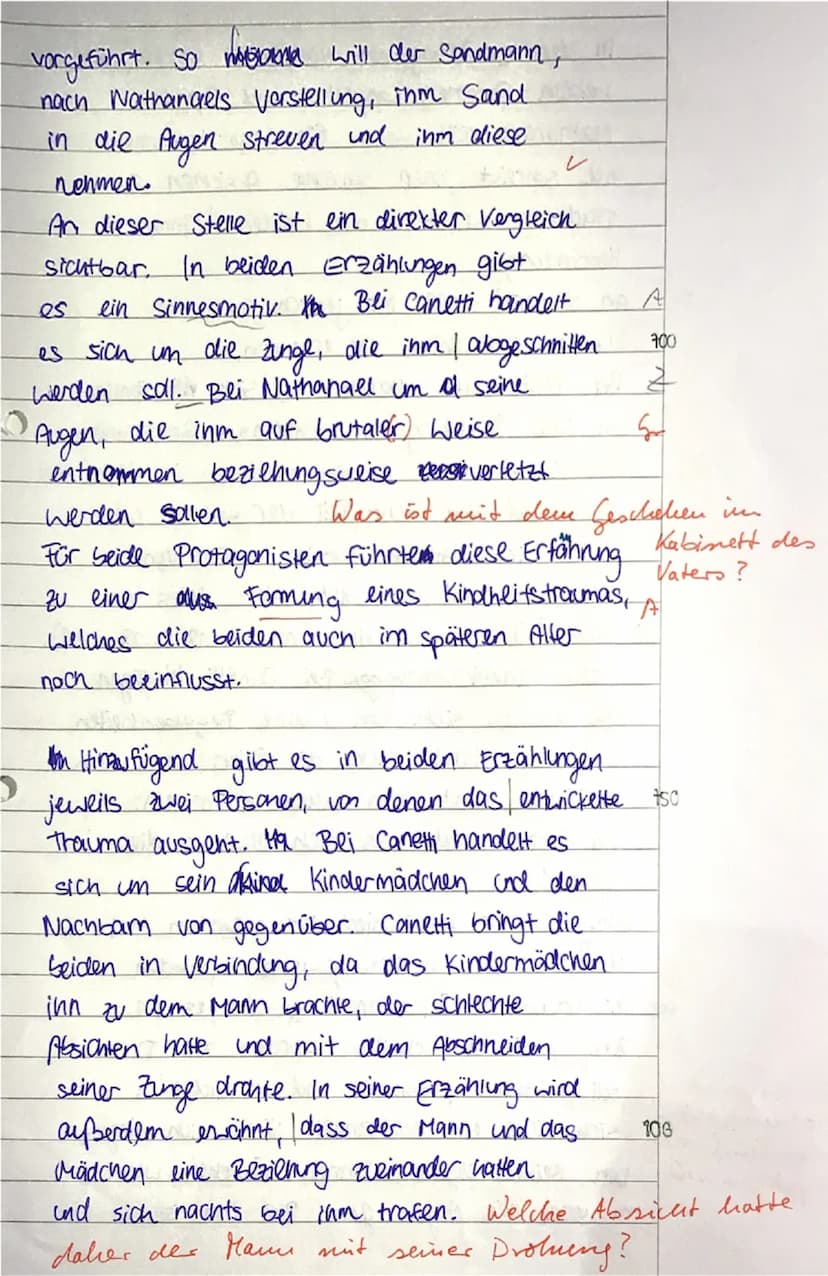 vorgeführt. So will der Sandmann,
nach Nathanaels Vorstellung, ihm Sand
in die Augen streuen und ihm diese
nehmen. ✓
An dieser Stelle ist ein direkter Vergleich
sichtbar. In beiden Erzählungen gibt
es ein Sinnesmotiv. Bei Canetti handelt A
es sich um die Zunge, die ihm | abgeschnitten 700
werden soll. Bei Nathanael um seine Z
Augen, die ihm auf brutale(r) Weise Gr
entnommen beziehungsweise verletzt
werden sollen. Was ist mit dem Geschehen im
Kabinett des
Vaters?
Für beide Protagonisten führte diese Erfahrung
zu einer Formung eines Kindheitstraumas, A
welches die beiden auch im späteren Alter
noch beeinflusst.
Hinzufügend gibt es in beiden Erzählungen
jeweils zwei Personen, von denen das | entwickelte 750
Trauma ausgeht. Bei Canetti handelt es
sich um sein Kindermädchen und den
Nachbarn von gegenüber. Canetti bringt die
beiden in Verbindung, da das Kindermädchen
ihn zu dem Mann brachte, der schlechte
Absichten hatte und mit dem Abschneiden
seiner Zunge drohte. In seiner Erzählung wird
außerdem erwähnt, | dass der Mann und das
Mädchen eine Beziehung zueinander hatten
und sich nachts bei ihm trafen. Welche Absicht hatte
daher der Mann mit seiner Drohung?